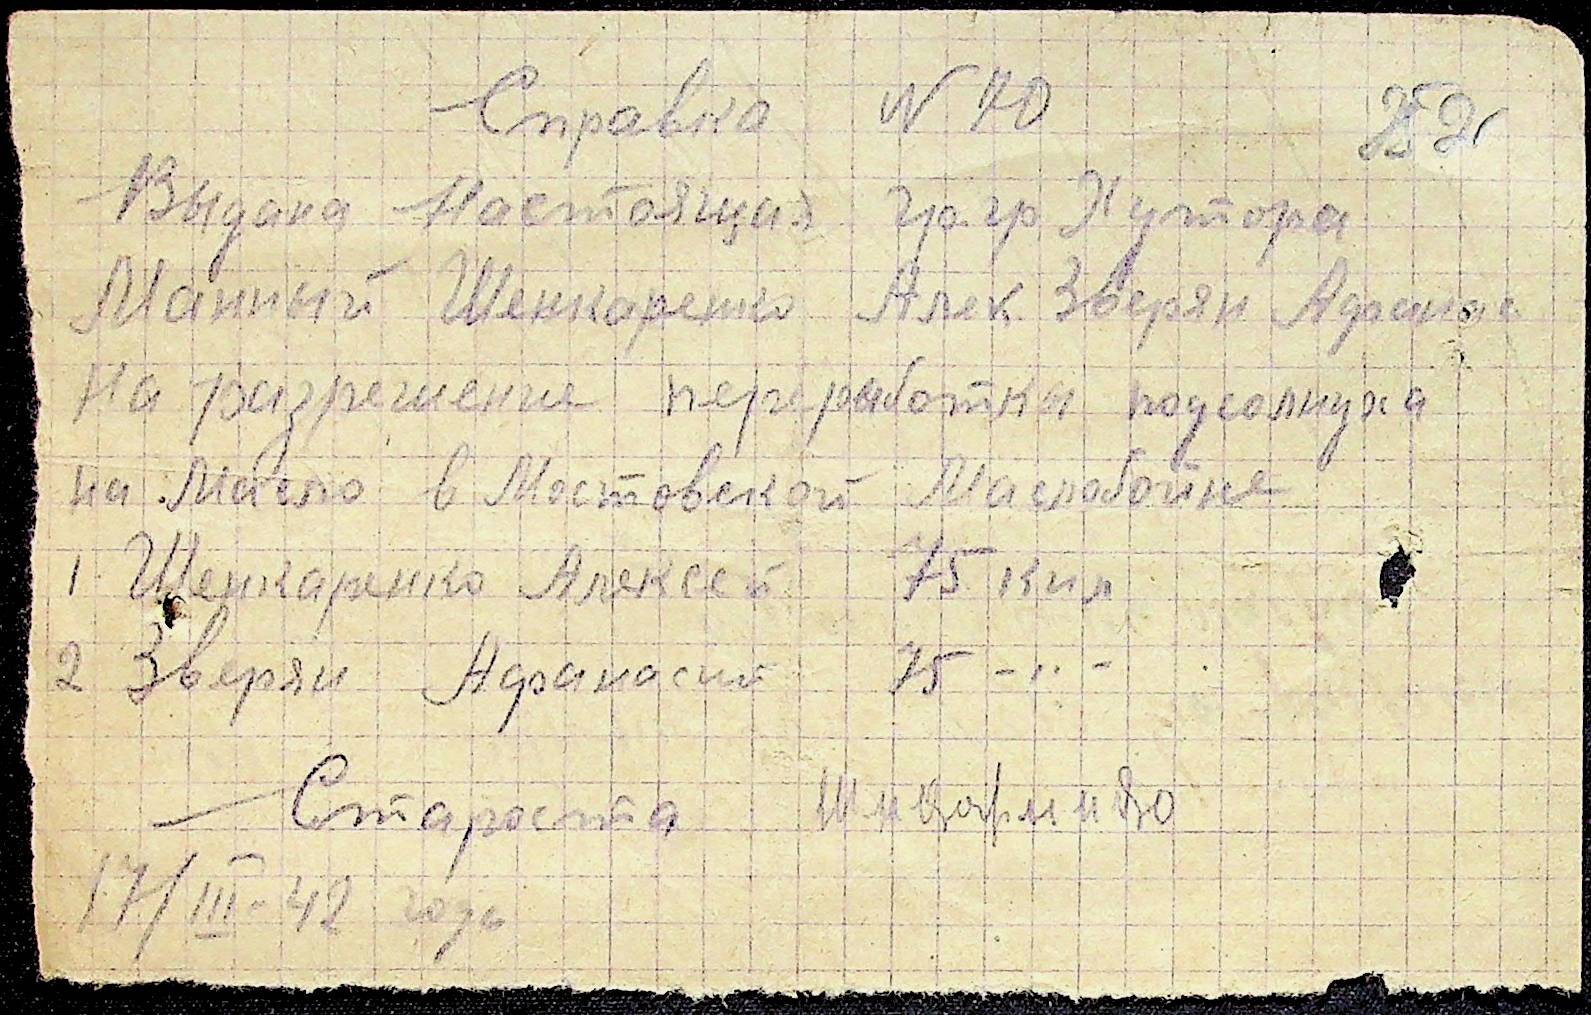 Справка N 70
Выдана Настоящая гр.гр Хутора
Манный Шенкаренко Алек Зверян Афанас
На разрешение перерыботки подсолнуха
на Масло в Мостовской Маслобойне
1 Шенкаренко Алексей 75 кил
2 Зверян Афанасий 75 -"-
Староста
17/III-42 года